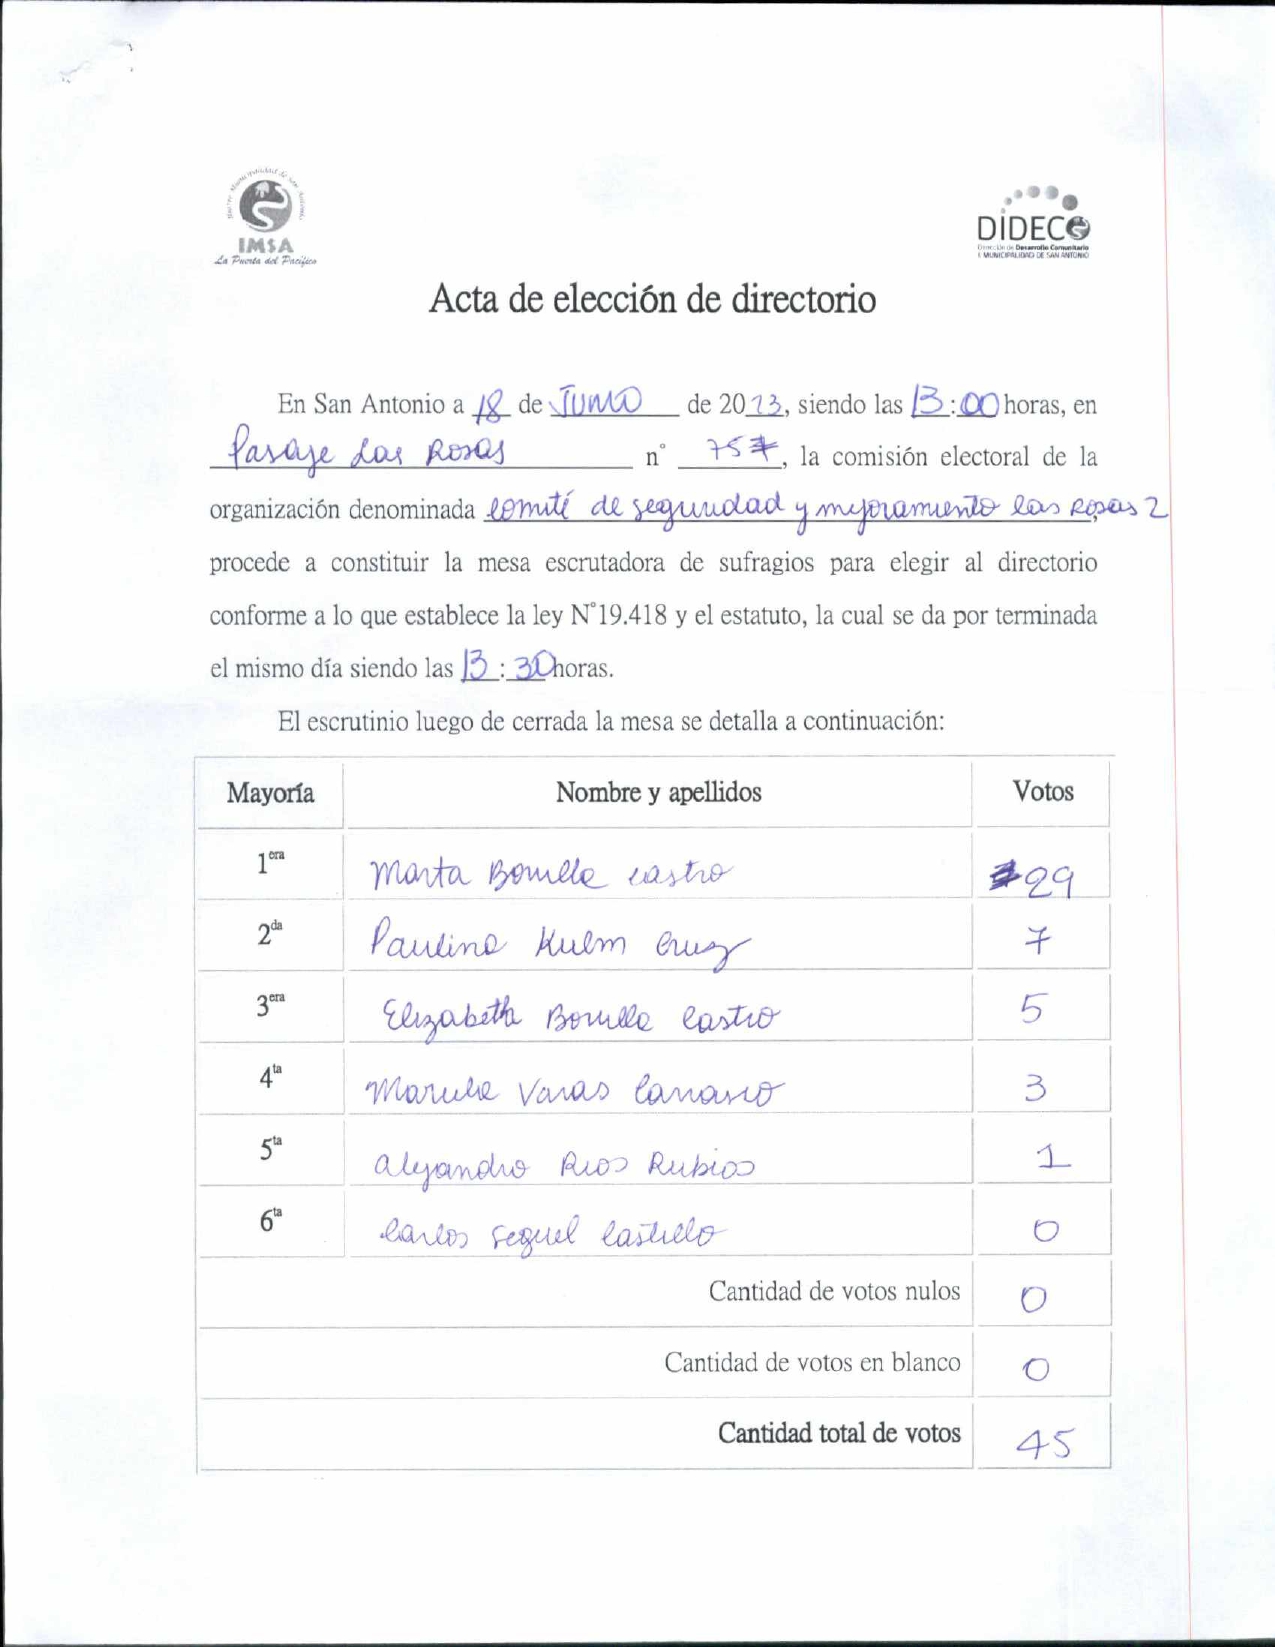 Ilustre Municipalidad de San Antonio
IMSA
La Puerta del Pacífico
DIDECO
Dirección de Desarrollo Comunitario
I. MUNICIPALIDAD DE SAN ANTONIO
Acta de elección de directorio
En San Antonio a 18 de Junio de 2023, siendo las 13:00 horas, en
Pasaje Las Rosas n° 757, la comisión electoral de la
organización denominada comité de seguridad y mejoramiento las Rosas 2,
procede a constituir la mesa escrutadora de sufragios para elegir al directorio
conforme a lo que establece la ley N°19.418 y el estatuto, la cual se da por terminada
el mismo día siendo las 13:30 horas.
El escrutinio luego de cerrada la mesa se detalla a continuación:
Mayoría Nombre y apellidos Votos
1era Marta Bonilla Castro 29
2da Paulina Cruz 7
3era Elizabeth Bonilla Castro 5
4ta Varas Carrasco 3
5ta Alejandro Rios Rubios 1
6ta Carlos Seguel Castillo 0
Cantidad de votos nulos 0
Cantidad de votos en blanco 0
Cantidad total de votos 45